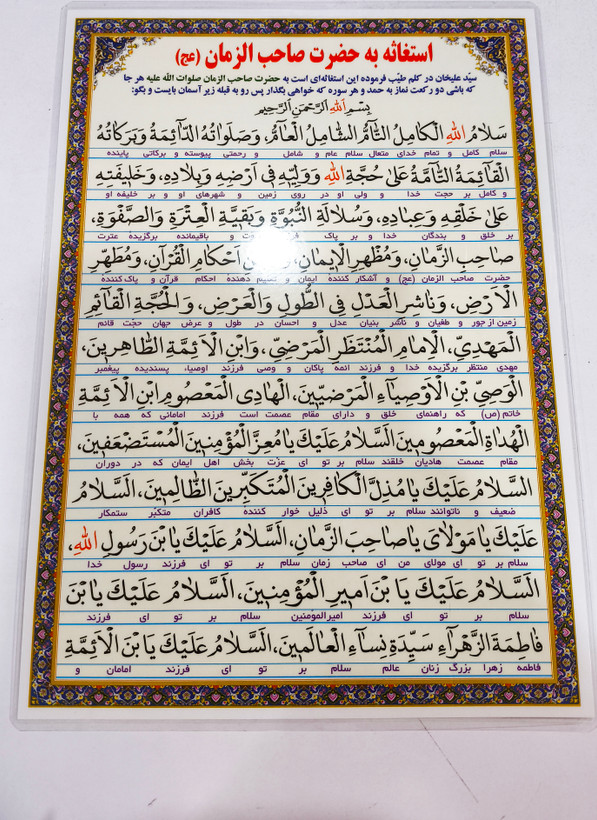 استغاثه به حضرت صاحب الزمان (عج)
سیّد علیخان در کلم طیّب فرموده این استغاثه‌ای است به حضرت صاحب الزمان صلوات الله علیه هر جا
که باشی دو رکعت نماز به حمد و هر سوره که خواهی بگذار پس رو به قبله زیر آسمان بایست و بگو:
بِسْمِ اللهِ الرَّحْمنِ الرَّحیمِ
سَلامُ اللهِ الْکامِلُ التّآمُّ الشّامِلُ الْعآمُّ، وَصَلَواتُهُ الدّآئِمَةُ وَبَرَکاتُهُ
سلام کامل و تمام خدای متعال سلام عام و شامل و رحمتی پیوسته و برکاتی پاینده
الْقآئِمَةُ التّآمَّةُ عَلی حُجَّةِ اللهِ وَوَلِیِّهِ فی اَرْضِهِ وَبِلادِهِ، وَخَلیفَتِهِ
و کامل بر حجت خدا و ولی او در روی زمین و شهرهای او و بر خلیفه او
عَلی خَلْقِهِ وَعِبادِهِ، وَسُلالَةِ النُّبُوَّةِ وَبَقِیَّةِ الْعِتْرَةِ وَالصَّفْوَةِ،
بر خلق و بندگان خدا و بر پاک و باقیمانده برگزیده عترت
صاحِبِ الزَّمانِ، وَمُظْهِرِ الْایمانِ، اَحْکامِ الْقُرْآنِ، وَمُطَهِّرِ
حضرت صاحب الزمان (عج) و آشکار کننده ایمان و دهنده احکام قرآن و پاک کننده
الْاَرْضِ، وَناشِرِ الْعَدْلِ فِی الطُّولِ وَالْعَرْضِ، وَالْحُجَّةِ الْقآئِمِ
زمین از جور و طغیان و ناشر بنیان عدل و احسان در طول و عرض جهان حجّت قائم
الْمَهْدِیِّ، الْاِمامِ الْمُنْتَظَرِ الْمَرْضِیِّ، وَابْنِ الْاَئِمَّةِ الطّاهِرینَ،
مهدی منتظر برگزیده خدا و فرزند ائمه پاکان و وصی فرزند اوصیاء پسندیده پیغمبر
الْوَصِیِّ بْنِ الْاَوْصِیآءِ الْمَرْضِیّینَ، الْهادِی الْمَعْصُومِ ابْنِ الْاَئِمَّةِ
خاتم (ص) که راهنمای خلق و دارای مقام عصمت است فرزند امامانی که همه با
الْهُداةِ الْمَعْصُومینَ السَّلامُ عَلَیْکَ یا مُعِزَّ الْمُؤْمِنینَ الْمُسْتَضْعَفینَ،
مقام عصمت هادیان خلقند سلام بر تو ای عزت بخش اهل ایمان که در دوران
السَّلامُ عَلَیْکَ یا مُذِلَّ الْکافِرینَ الْمُتَکَبِّرینَ الظّالِمینَ، اَلسَّلامُ
ضعیف و ناتوانند سلام بر تو ای ذلیل خوار کننده کافران متکبّر ستمکار
عَلَیْکَ یا مَوْلایَ یا صاحِبَ الزَّمانِ، اَلسَّلامُ عَلَیْکَ یَا بْنَ رَسُولِ اللهِ،
سلام بر تو ای مولای من ای صاحب زمان سلام بر تو ای فرزند رسول خدا
اَلسَّلامُ عَلَیْکَ یَا بْنَ اَمیرِ الْمُؤْمِنینَ، اَلسَّلامُ عَلَیْکَ یَا بْنَ
سلام بر تو ای فرزند امیرالمومنین سلام بر تو ای فرزند
فاطِمَةَ الزَّهْرآءِ سَیِّدَةِ نِسآءِ الْعالَمینَ، اَلسَّلامُ عَلَیْکَ یَا بْنَ الْاَئِمَّةِ
فاطمه زهرا بزرگ زنان عالم سلام بر تو ای فرزند امامان و